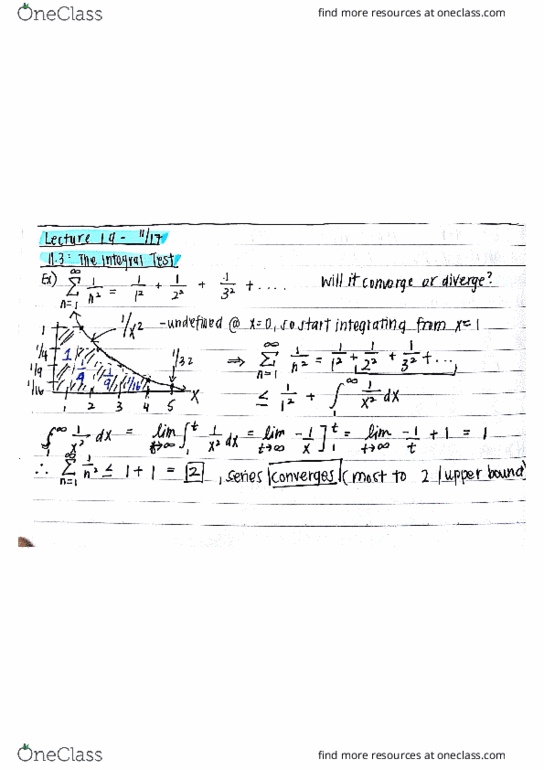 OneClass
find more resources at oneclass.com
Lecture 19 - 11/17
11.3: The Integral Test
Ex) ∞ Σ n=1 1/n² = 1/1² + 1/2² + 1/3² + .... Will it converge or diverge?
1/x² - undefined @ x=0, so start integrating from x=1
1 1/4 1/9 1/16
1 1/4 1/9 1/16 1/32
1 2 3 4 5 x
⇒ ∞ Σ n=1 1/n² = 1/1² + 1/2² + 1/3² + ...
≤ 1/1² + ∫₁^∞ 1/x² dx
∫₁^∞ 1/x² dx = lim t→∞ ∫₁^t 1/x² dx = lim t→∞ -1/x ]₁^t = lim t→∞ -1/t + 1 = 1
∴ ∞ Σ n=1 1/n² ≤ 1 + 1 = 2, series converges (most to 2 / upper bound)
OneClass
find more resources at oneclass.com